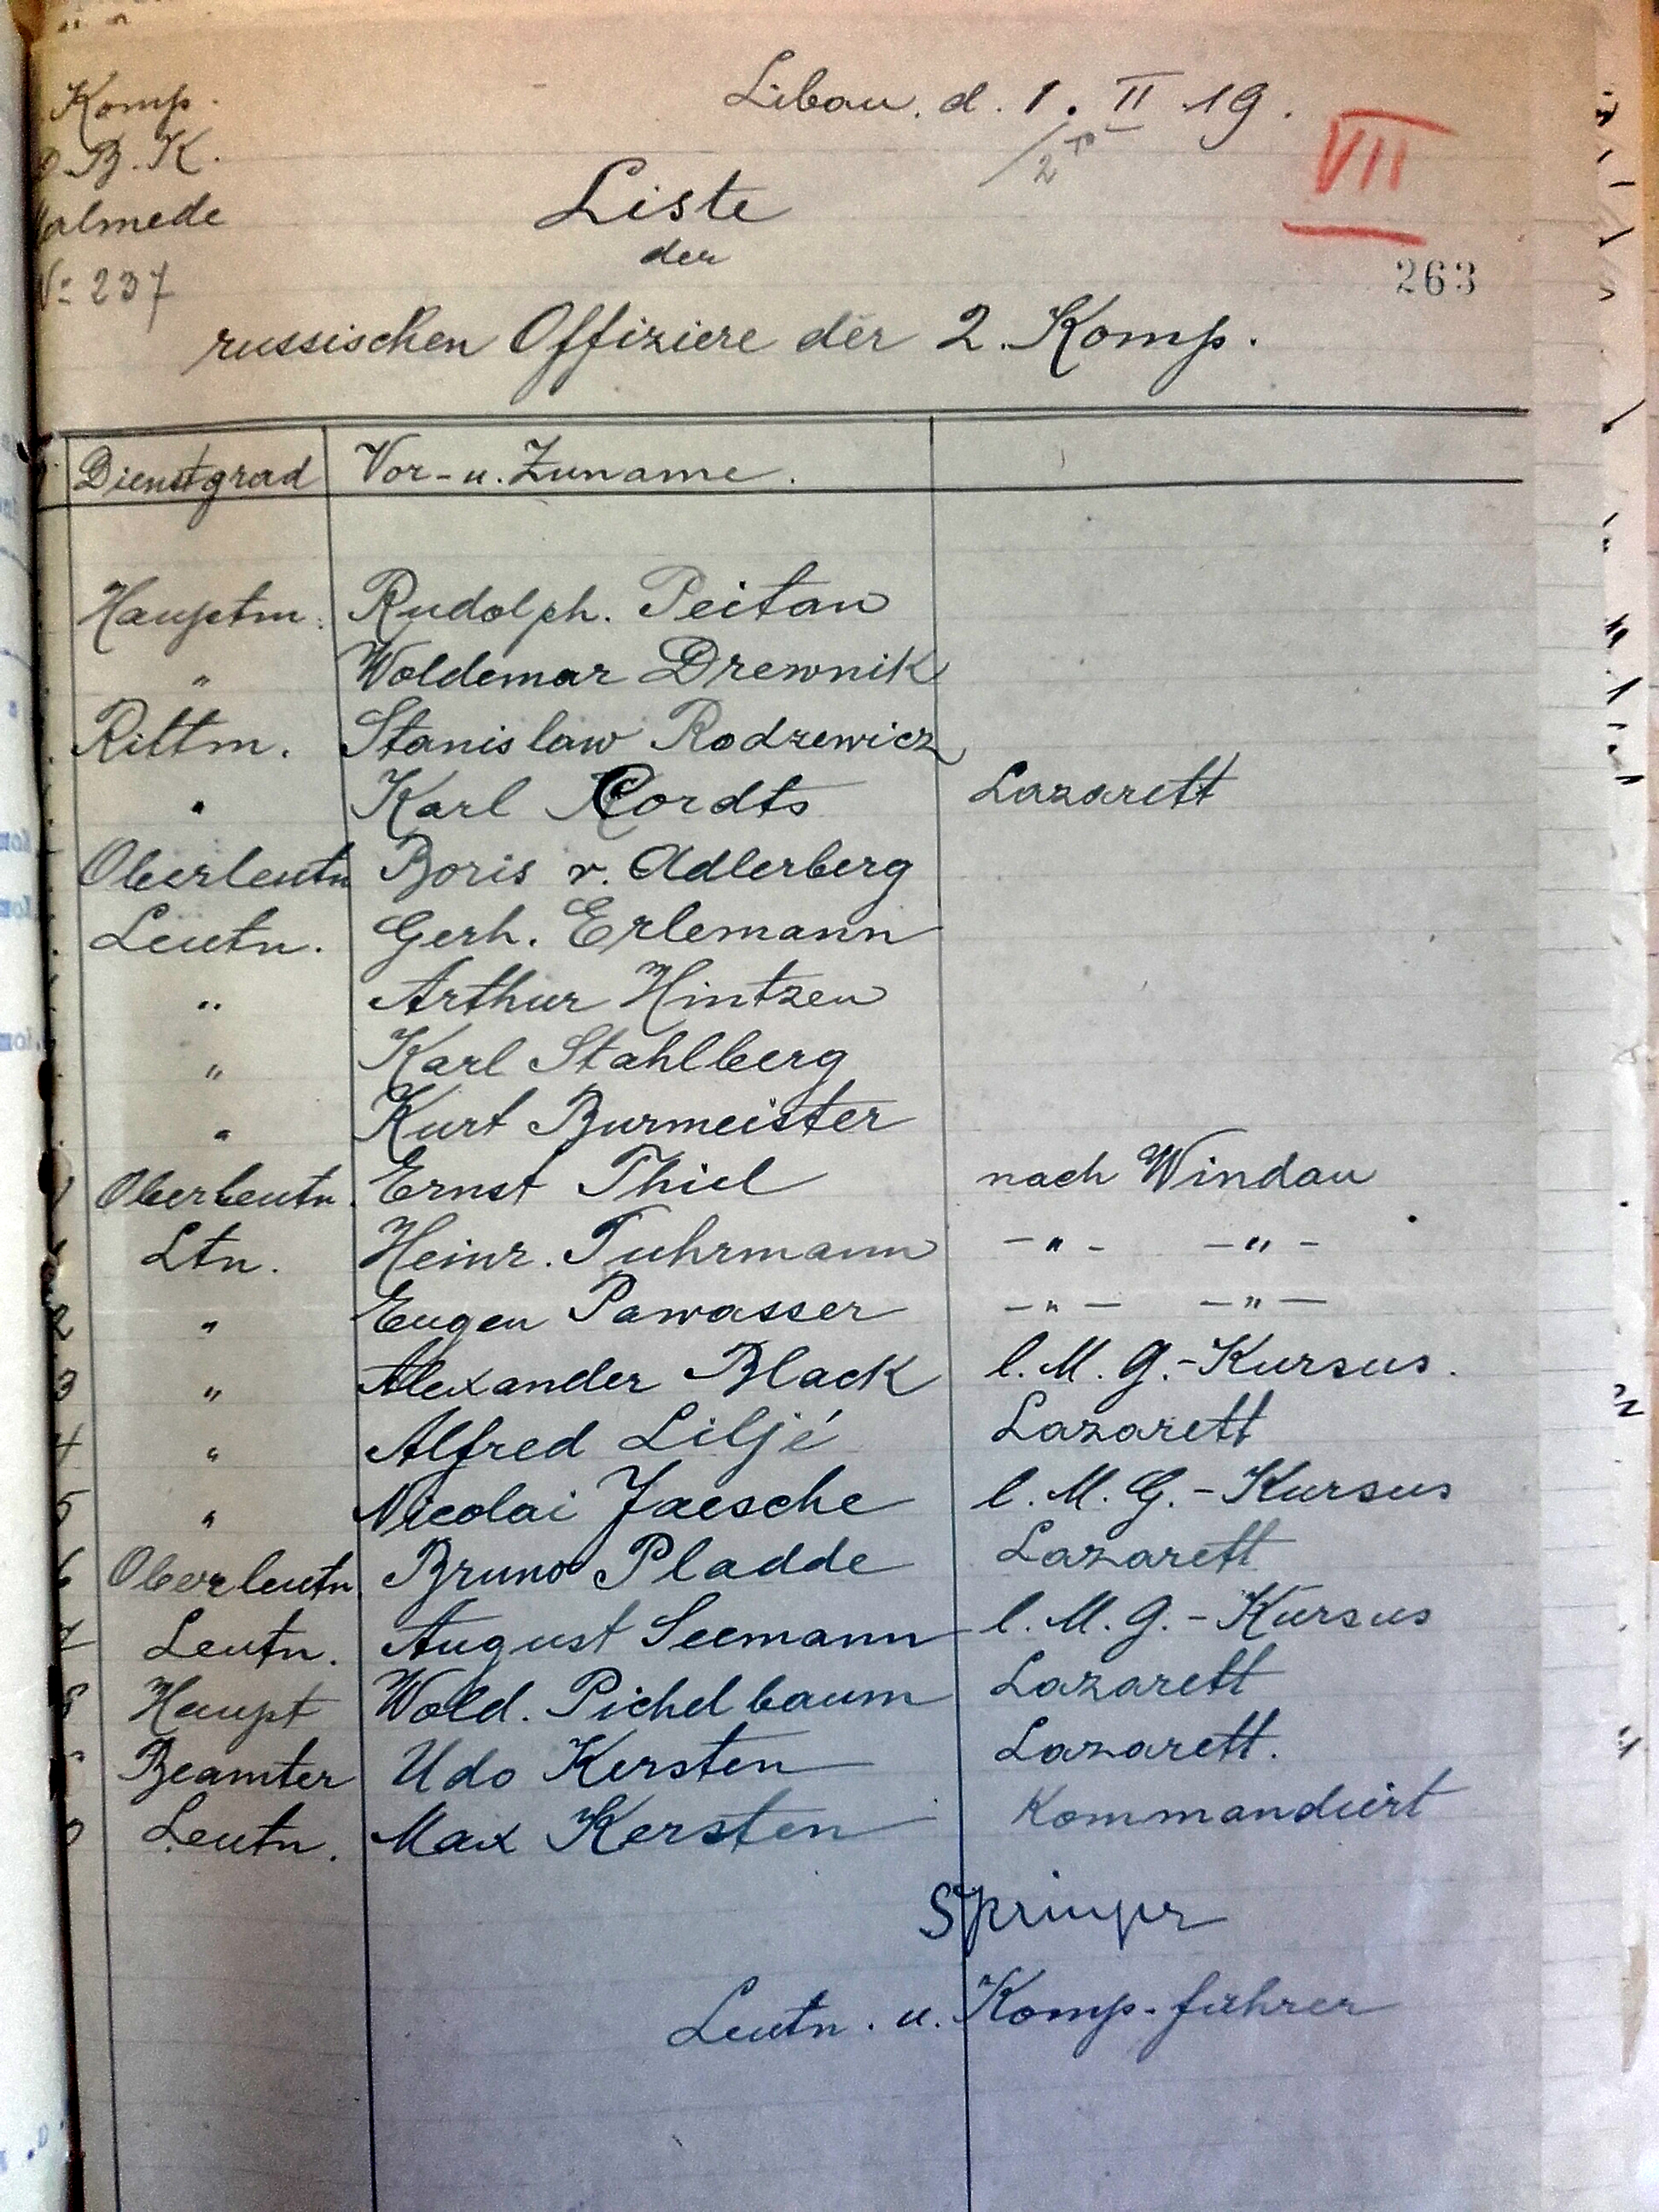 Komp.
B. K.
Libau, d. 1. II 19.
VII
almede
№ 237
Liste
der
263
russischen Offiziere der 2. Komp.
Dienstgrad Vor- u. Zuname.
Hauptm. Rudolph. Peitan
" Woldemar Drewnik
Rittm. Stanislaw Rodzewicz
" Karl Cordts Lazarett
Oberleutn Boris v. Adlerberg
Leutn. Gerh. Erlemann
" Arthur Hintzen
" Karl Stahlberg
" Kurt Burmeister
Oberleutn. Ernst Thiel nach Windau
Ltn. Heinr. Fuhrmann -"- -"-
2 " Eugen Pawasser -"- -"-
3 " Alexander Black l. M. G.-Kursus.
4 " Alfred Liljé Lazarett
5 " Nicolai Jaesche l. M. G.-Kursus
6 Oberleutn. Bruno Pladde Lazarett
7 Leutn. August Seemann l. M. G.-Kursus
8 Haupt Wold. Pichelbaum Lazarett
Beamter Udo Kersten Lazarett.
0 Leutn. Max Kersten Kommandiert
Springer
Leutn. u. Komp.führer